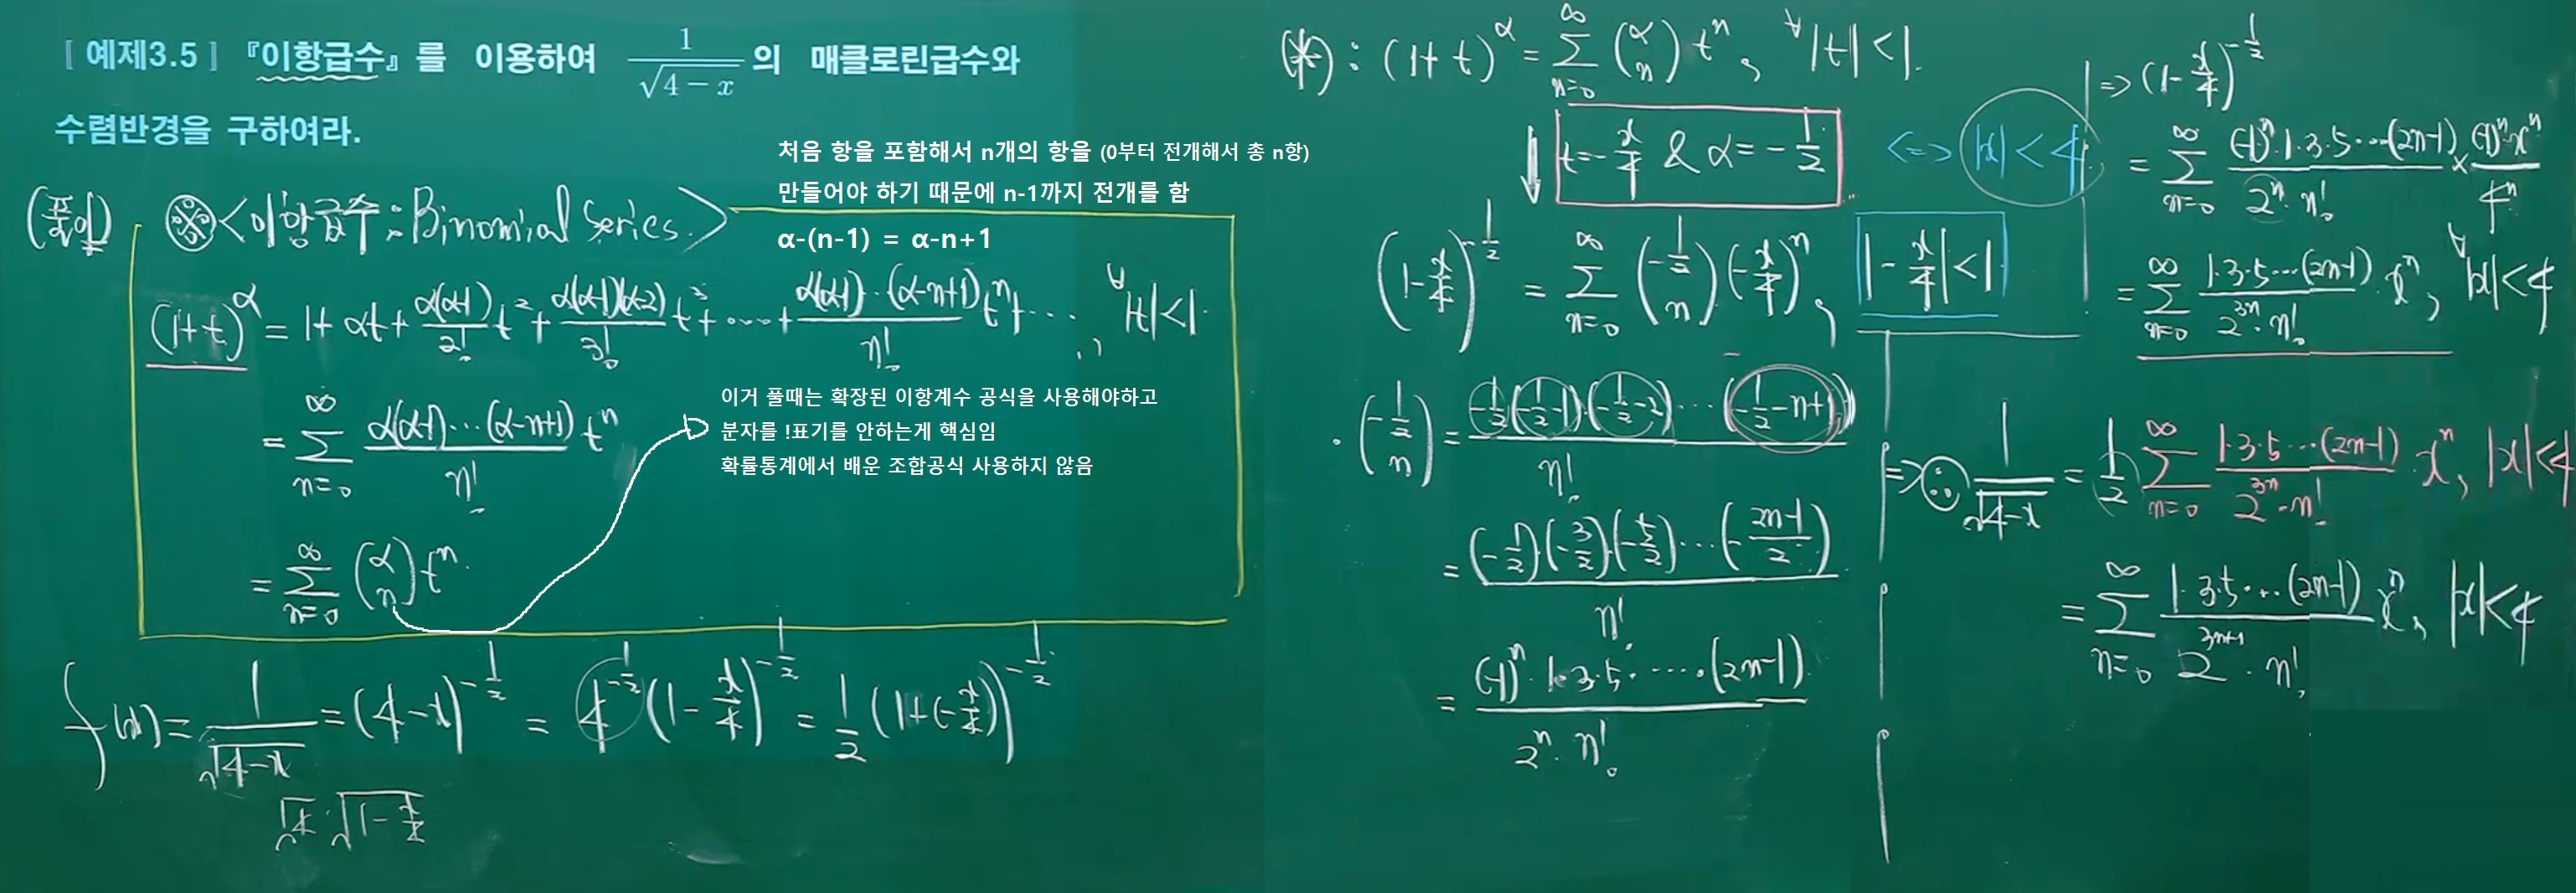 [ 예제3.5 ] 『이항급수』를 이용하여 1/√(4 − x) 의 매클로린급수와
수렴반경을 구하여라.
처음 항을 포함해서 n개의 항을 (0부터 전개해서 총 n항)
만들어야 하기 때문에 n-1까지 전개를 함
α-(n-1) = α-n+1
(풀이) ※ <이항급수 : Binomial Series.>
(1+t)^α = 1 + αt + α(α-1)/2! t² + α(α-1)(α-2)/3! t³ + ⋯ + α(α-1)⋯(α-n+1)/n! tⁿ + ⋯, ∀|t|<1.
= ∑_{n=0}^{∞} α(α-1)⋯(α-n+1)/n! tⁿ
= ∑_{n=0}^{∞} (α n) tⁿ.
이거 풀때는 확장된 이항계수 공식을 사용해야하고
분자를 !표기를 안하는게 핵심임
확률통계에서 배운 조합공식 사용하지 않음
f(x) = 1/√(4-x) = (4-x)^{-1/2} = 4^{-1/2} (1 - x/4)^{-1/2} = 1/2 (1+(-x/4))^{-1/2}
√4 · √(1 - x/4)
(※) : (1+t)^α = ∑_{n=0}^{∞} (α n) tⁿ, ∀|t|<1.
t = -x/4 & α = -1/2
<=> |x|<4
(1 - x/4)^{-1/2} = ∑_{n=0}^{∞} (-1/2 n) (-x/4)ⁿ, |-x/4|<1
· (-1/2 n) = (-1/2)(-1/2-1)(-1/2-2)⋯(-1/2-n+1) / n!
= (-1/2)·(-3/2)(-5/2)⋯(-(2n-1)/2) / n!
= (-1)ⁿ·1·3·5·⋯·(2n-1) / 2ⁿ·n!
=> (1 - x/4)^{-1/2}
= ∑_{n=0}^{∞} (-1)ⁿ·1·3·5⋯(2n-1) / 2ⁿ·n! × (-1)ⁿ·xⁿ / 4ⁿ
= ∑_{n=0}^{∞} 1·3·5⋯(2n-1) / 2^{3n}·n! · xⁿ, ∀|x|<4
=> ∴ 1/√(4-x) = 1/2 ∑_{n=0}^{∞} 1·3·5⋯(2n-1) / 2^{3n}·n! · xⁿ, |x|<4
= ∑_{n=0}^{∞} 1·3·5⋯(2n-1) / 2^{3n+1}·n! xⁿ, |x|<4